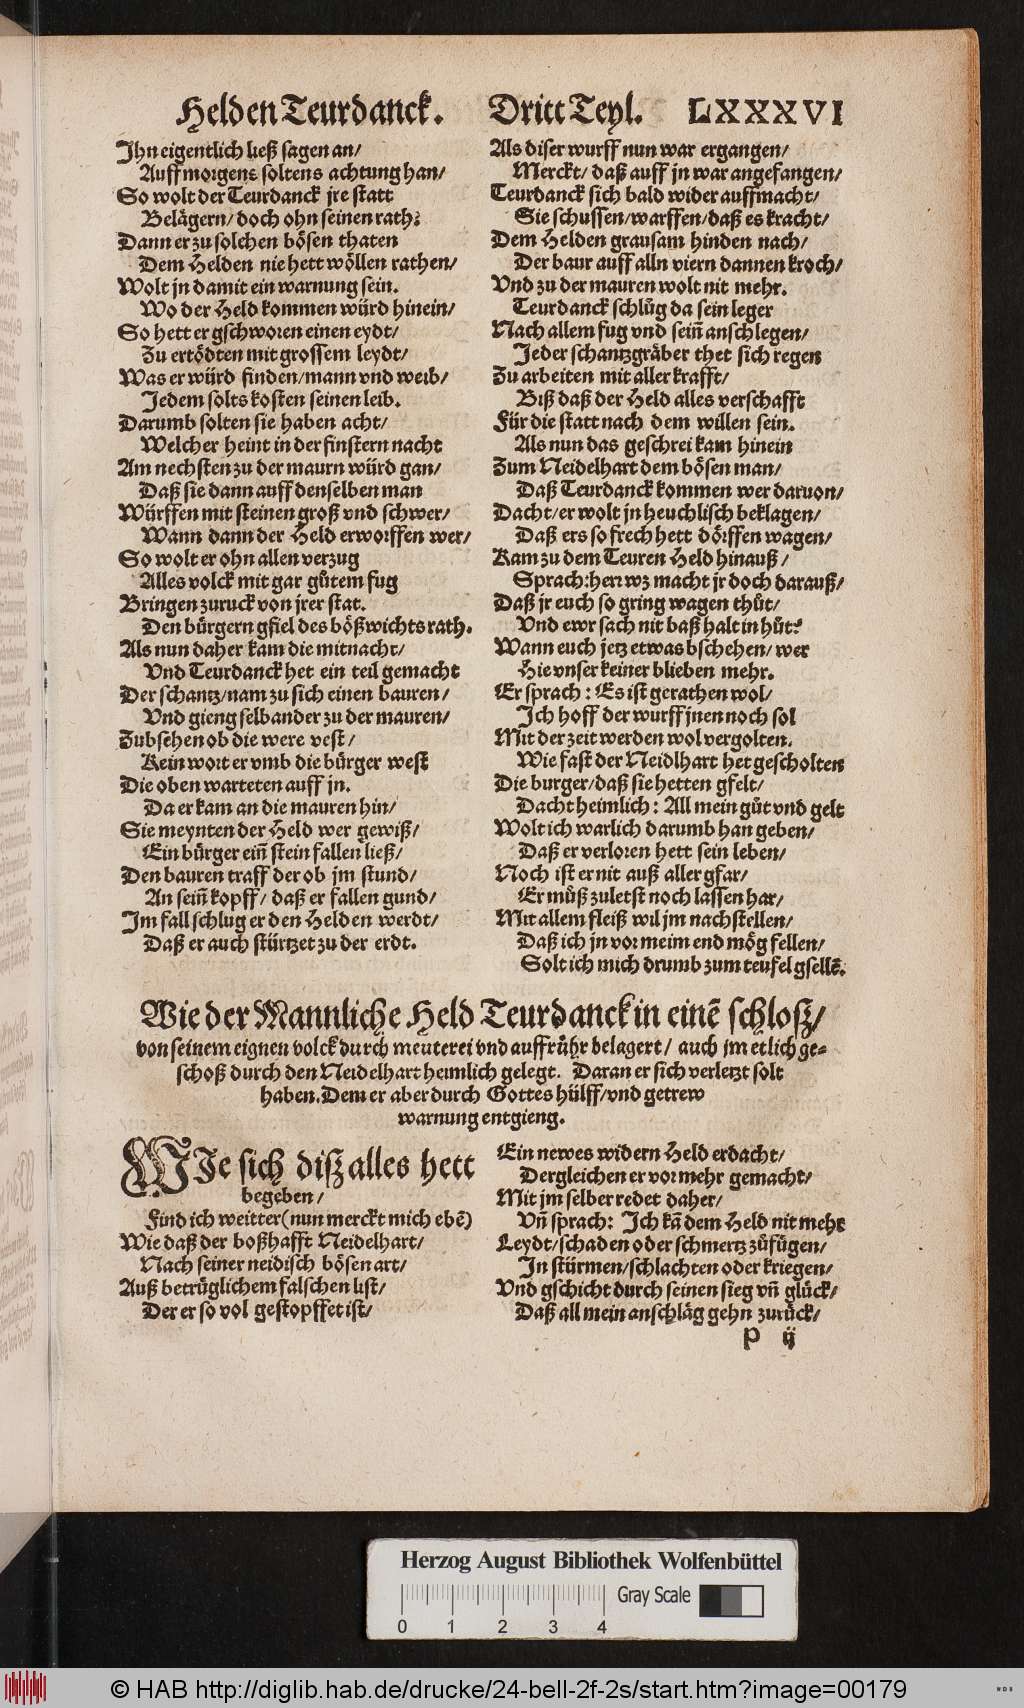 Helden Teurdanck. Dritt Teyl. LXXXVI
Jhn eigentlich ließ sagen an/
Auff morgens soltens achtung han/
So wolt der Teurdanck jre statt
Belägern/ doch ohn seinen rath:
Dann er zu solchen bösen thaten
Dem Helden nie hett wöllen rathen/
Wolt jn damit ein warnung sein.
Wo der Held kommen würd hinein/
So hett er gschworen einen eydt/
Zu ertödten mit grossem leydt/
Was er würd finden/ mann vnd weib/
Jedem solts kosten seinen leib.
Darumb solten sie haben acht/
Welcher heint in der finstern nacht
Am nechsten zu der maurn würd gan/
Daß sie dann auff denselben man
Würffen mit steinen groß vnd schwer/
Wann dann der Held erworffen wer/
So wolt er ohn allen verzug
Alles volck mit gar gůtem fug
Bringen zuruck von jrer stat.
Den bürgern gfiel des bößwichts rath.
Als nun daher kam die mitnacht/
Vnd Teurdanck het ein teil gemacht
Der schantz/ nam zu sich einen bauren/
Vnd gieng selbander zu der mauren/
Zubsehen ob die were vest/
Kein wort er vmb die bürger west
Die oben warteten auff jn.
Da er kam an die mauren hin/
Sie meynten der Held wer gewiß/
Ein bürger ein̄ stein fallen ließ/
Den bauren traff der ob jm stund/
An sein̄ kopff/ daß er fallen gund/
Jm fall schlug er den Helden werdt/
Daß er auch stürtzet zu der erdt.
Als diser wurff nun war ergangen/
Merckt/ daß auff jn war angefangen/
Teurdanck sich bald wider auffmacht/
Sie schussen/ warffen/ daß es kracht/
Dem Helden grausam hinden nach/
Der baur auff alln viern dannen kroch/
Vnd zu der mauren wolt nit mehr.
Teurdanck schlůg da sein leger
Nach allem fug vnd sein̄ anschlegen/
Jeder schantzgräber thet sich regen
Zu arbeiten mit aller krafft/
Biß daß der Held alles verschafft
Für die statt nach dem willen sein.
Als nun das geschrei kam hinein
Zum Neidelhart dem bösen man/
Daß Teurdanck kommen wer daruon/
Dacht/ er wolt jn heuchlisch beklagen/
Daß ers so frech hett dörffen wagen/
Kam zu dem Teuren Held hinauß/
Sprach: herr wz macht jr doch darauß/
Daß jr euch so gring wagen thůt/
Vnd ewr sach nit baß halt in hůt?
Wann euch jetz etwas bschehen/ wer
Hie vnser keiner blieben mehr.
Er sprach: Es ist gerathen wol/
Jch hoff der wurff jnen noch sol
Mit der zeit werden wol vergolten.
Wie fast der Neidlhart het gescholten
Die burger/ daß sie hetten gfelt/
Dacht heimlich: All mein gůt vnd gelt
Wolt ich warlich darumb han geben/
Daß er verloren hett sein leben/
Noch ist er nit auß aller gfar/
Er můß zuletst noch lassen har/
Mit allem fleiß wil jm nachstellen/
Daß ich jn vor meim end mög fellen/
Solt ich mich drumb zum teufel gsellē.
Wie der Mannliche Held Teurdanck in einē schlosz/
von seinem eignen volck durch meuterei vnd auffrůhr belagert/ auch jm etlich ge-
schoß durch den Neidelhart heimlich gelegt. Daran er sich verletzt solt
haben. Dem er aber durch Gottes hülff/ vnd getrew
warnung entgieng.
WJe sich disz alles hett
begeben/
Find ich weitter (nun merckt mich ebē)
Wie daß der boßhafft Neidelhart/
Nach seiner neidisch bösen art/
Auß betrüglichem falschen list/
Der er so vol gestopffet ist/
Ein newes widern Held erdacht/
Dergleichen er vor mehr gemacht/
Mit jm selber redet daher/
Vn̄ sprach: Jch kā dem Held nit mehr
Leydt/ schaden oder schmertz zůfügen/
Jn stürmen/ schlachten oder kriegen/
Vnd gschicht durch seinen sieg vn̄ glück/
Daß all mein anschläg gehn zurück/
P ij
Herzog August Bibliothek Wolfenbüttel
Gray Scale
0 1 2 3 4
© HAB http://diglib.hab.de/drucke/24-bell-2f-2s/start.htm?image=00179